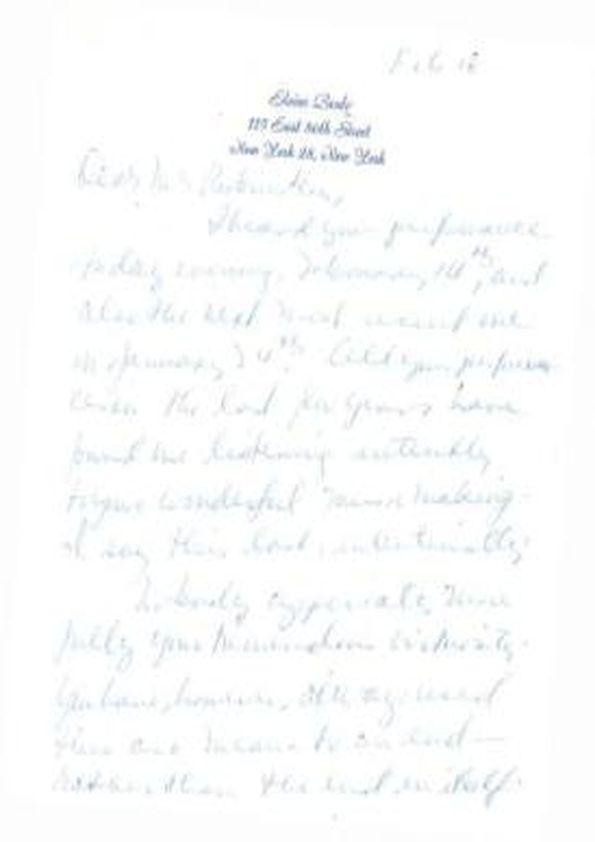 Feb 18
Elaine
115 East 86th Street
New York 28, New York
Dear Mr Rubinstein,
I heard your performance
evening, February 14th, and
also the next most recent one
on January 24th. All your
the last few years have
found me listening intently
to your wonderful music making.
I say this last, intentionally.
Nobody appreciates more
fully your tremendous virtuosity.
You have, however, always used
this as a means to an end—
rather than the end in itself.